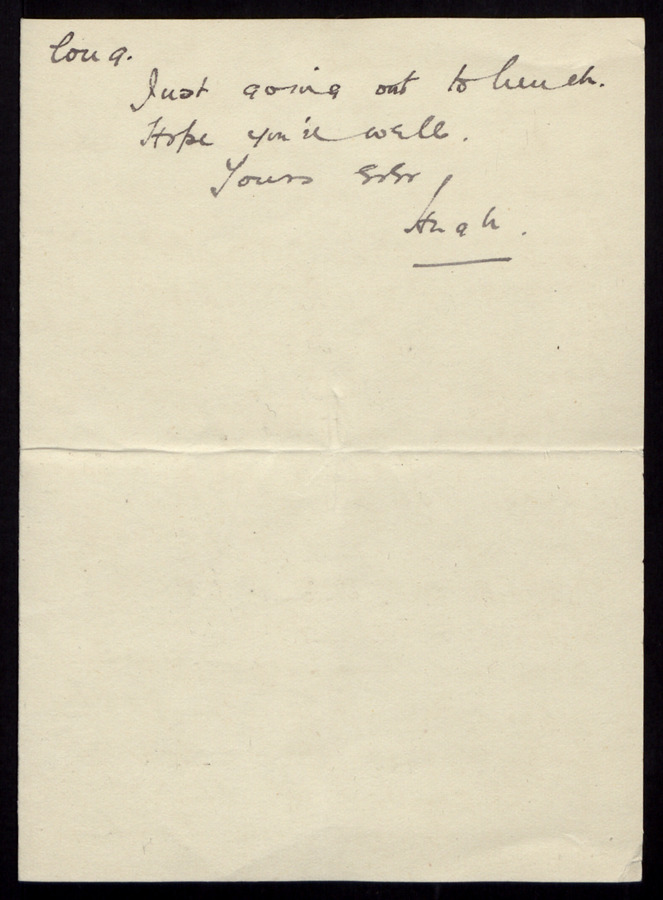 long.
Just going out to lunch.
Hope you're well.
Yours ever
Hugh.